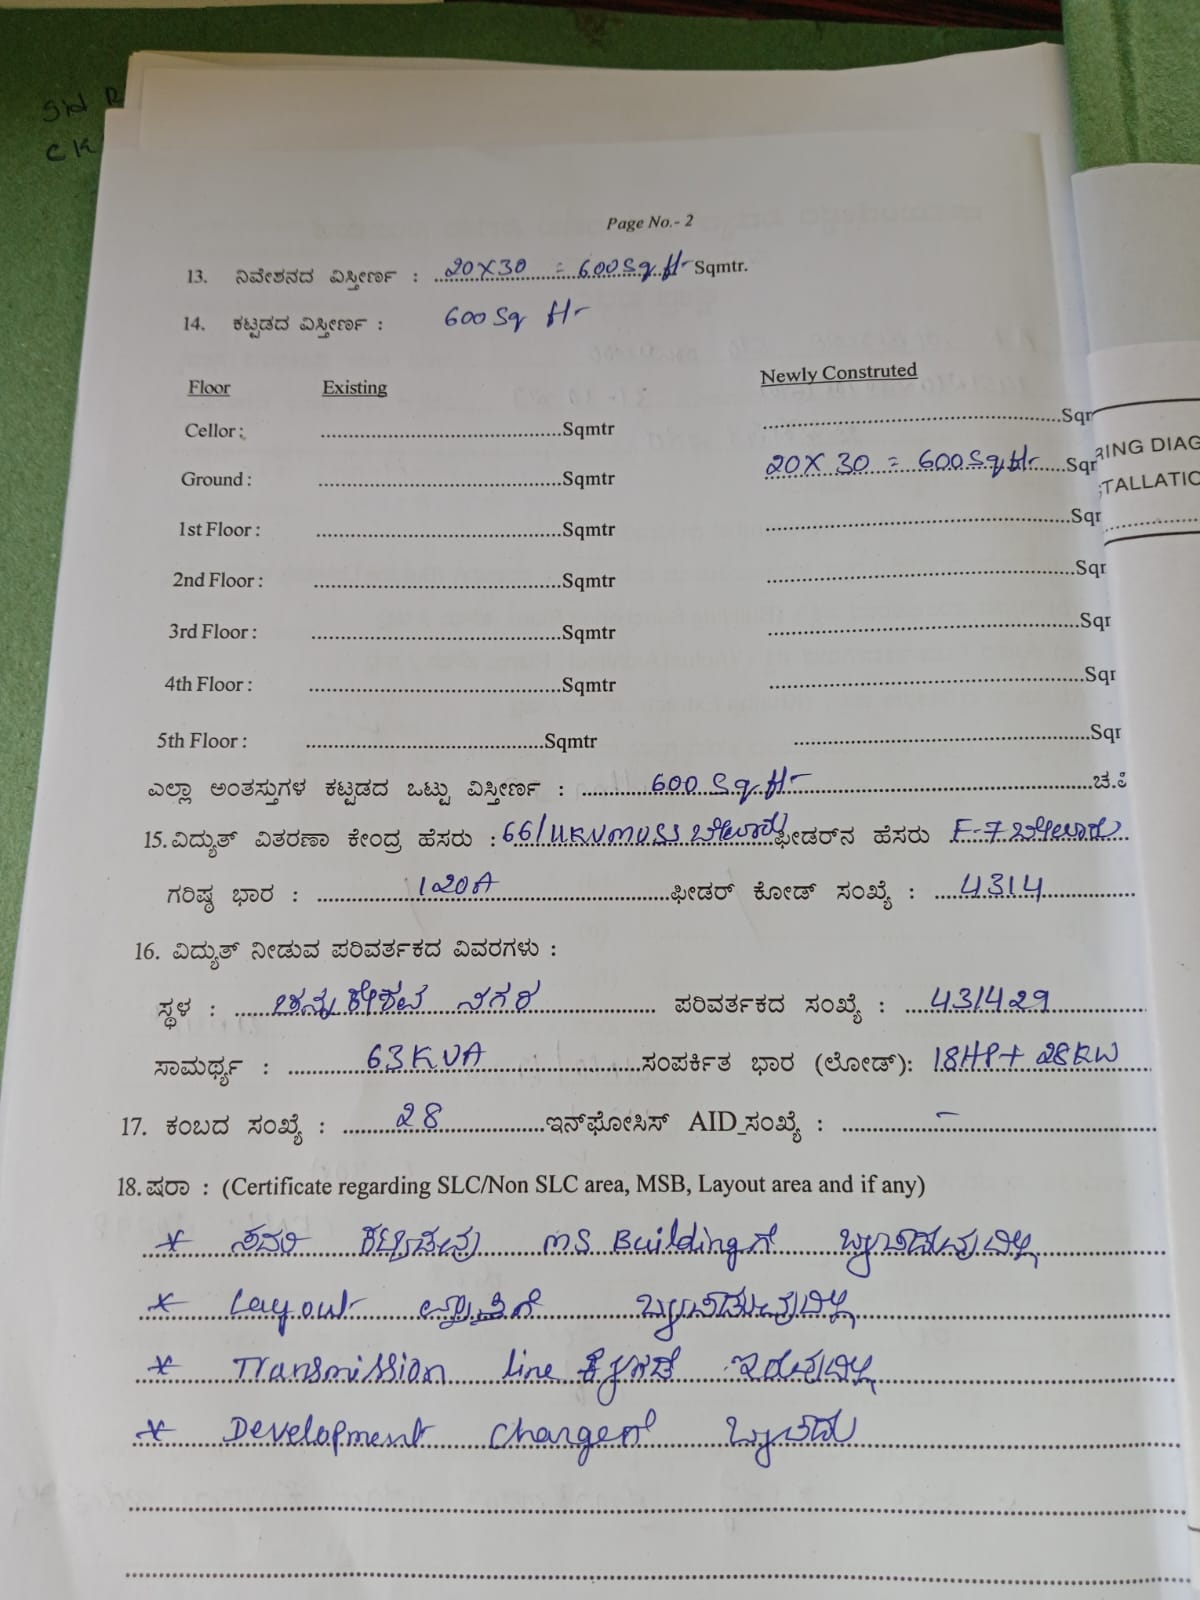 Sid
CK
Page No.- 2
13. ನಿವೇಶನದ ವಿಸ್ತೀರ್ಣ : 20X30 = 600 Sq ft Sqmtr.
14. ಕಟ್ಟಡದ ವಿಸ್ತೀರ್ಣ : 600 Sq ft
Floor Existing Newly Construted
Cellor: Sqmtr Sqr
Ground : Sqmtr 20X 30 = 600 Sq ft Sqr
RING DIAG
TALLATIO
1st Floor : Sqmtr Sqr
2nd Floor : Sqmtr Sqr
3rd Floor : Sqmtr Sqr
4th Floor : Sqmtr Sqr
5th Floor : Sqmtr Sqr
ಎಲ್ಲಾ ಅಂತಸ್ತುಗಳ ಕಟ್ಟಡದ ಒಟ್ಟು ವಿಸ್ತೀರ್ಣ : 600 Sq ft ಚ.
15. ವಿದ್ಯುತ್ ವಿತರಣಾ ಕೇಂದ್ರ ಹೆಸರು : 66/11KV MUSS ಬೇಲೂರು ಫೀಡರ್‌ನ ಹೆಸರು F-7 ಬೇಲೂರು
ಗರಿಷ್ಠ ಭಾರ : 120A ಫೀಡರ್ ಕೋಡ್ ಸಂಖ್ಯೆ : 4314
16. ವಿದ್ಯುತ್ ನೀಡುವ ಪರಿವರ್ತಕದ ವಿವರಗಳು :
ಸ್ಥಳ : ಚನ್ನಕೇಶವ ನಗರ ಪರಿವರ್ತಕದ ಸಂಖ್ಯೆ : 431429
ಸಾಮರ್ಥ್ಯ : 63 KVA ಸಂಪರ್ಕಿತ ಭಾರ (ಲೋಡ್): 18HP+ 28KW
17. ಕಂಬದ ಸಂಖ್ಯೆ : 28 ಇನ್‌ಫೋಸಿಸ್ AID_ಸಂಖ್ಯೆ : -
18. ಷರಾ : (Certificate regarding SLC/Non SLC area, MSB, Layout area and if any)
* ಸದರಿ ಕಟ್ಟಡವು MS Buildingಗೆ ಒಳಪಡುವುದಿಲ್ಲ
* Layout ವ್ಯಾಪ್ತಿಗೆ ಒಳಪಡುವುದಿಲ್ಲ
* Transmission line ಕೆಳಗಡೆ ಇರುವುದಿಲ್ಲ
* Development